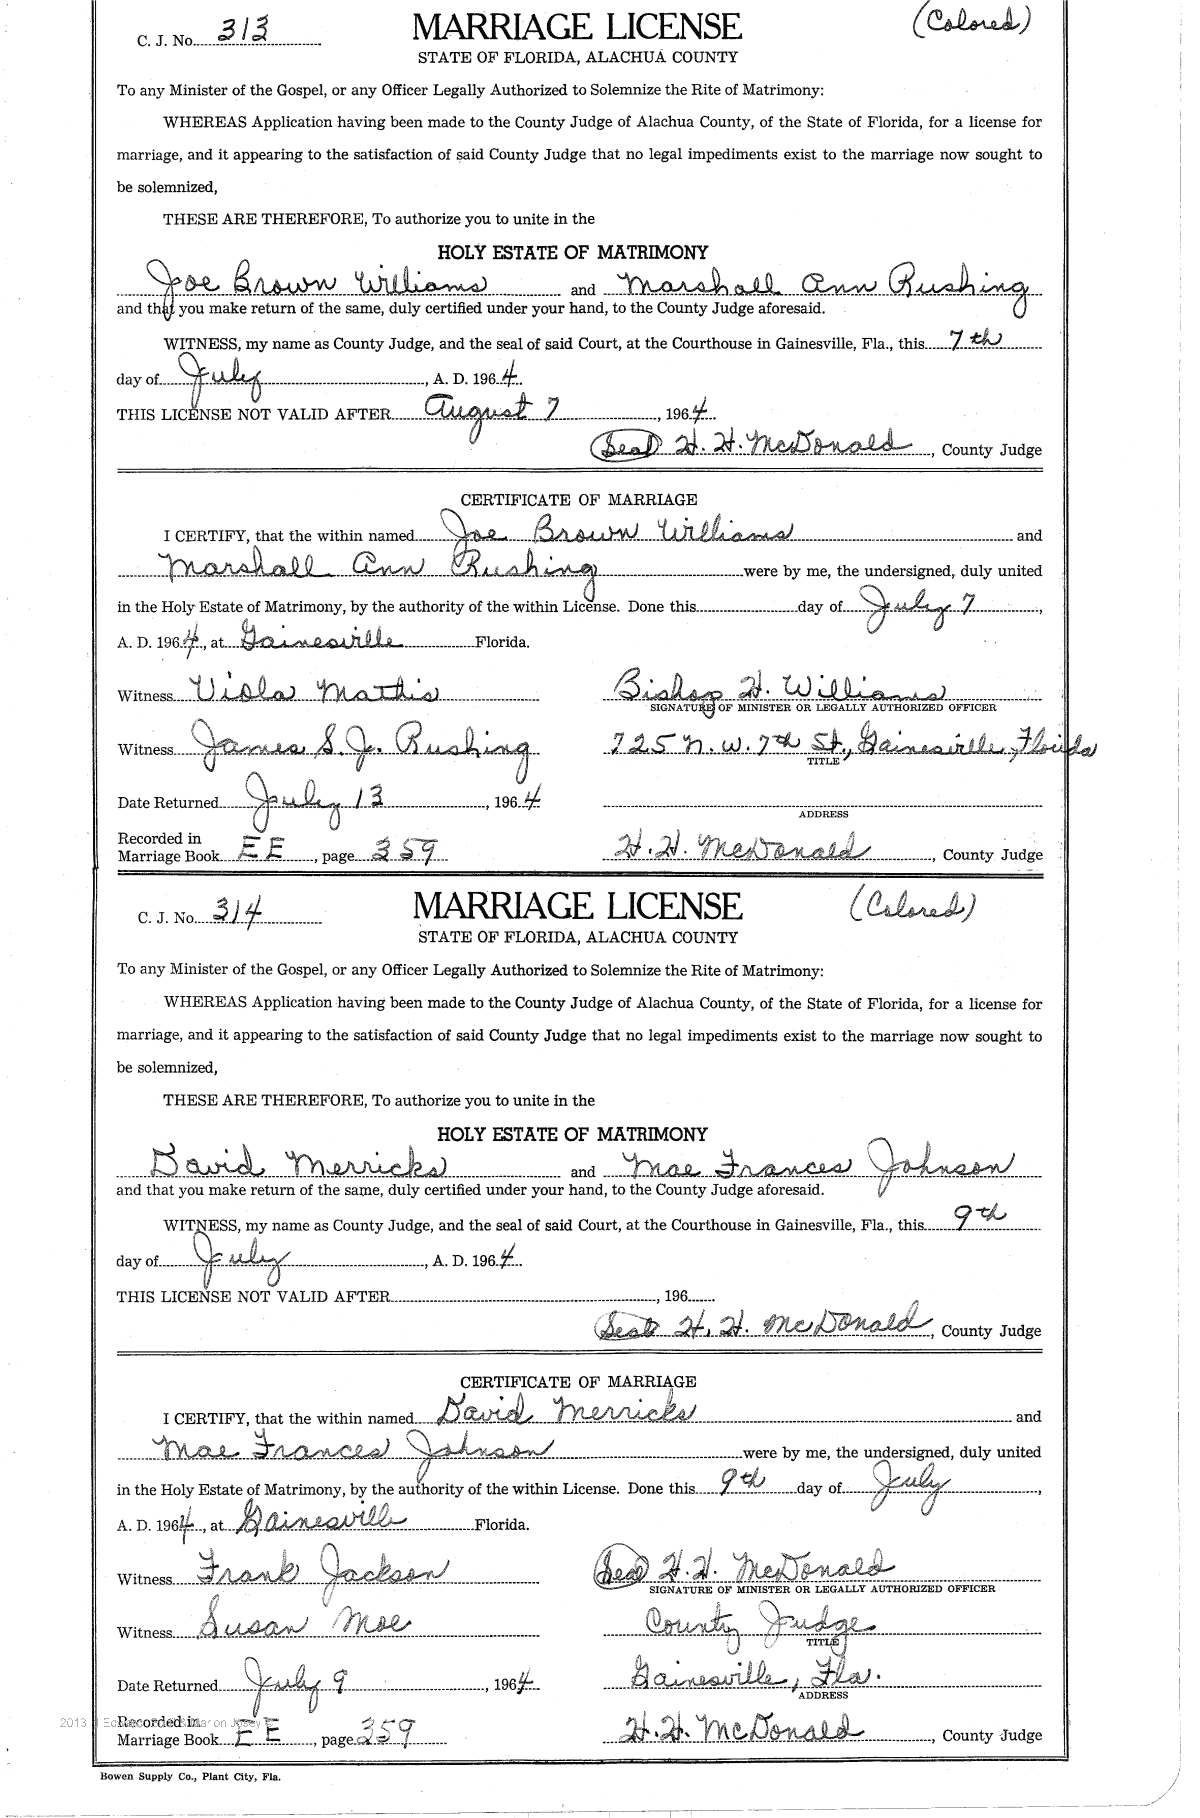 C. J. No. 313 MARRIAGE LICENSE (Colored)
STATE OF FLORIDA, ALACHUA COUNTY
To any Minister of the Gospel, or any Officer Legally Authorized to Solemnize the Rite of Matrimony:
WHEREAS Application having been made to the County Judge of Alachua County, of the State of Florida, for a license for
marriage, and it appearing to the satisfaction of said County Judge that no legal impediments exist to the marriage now sought to
be solemnized,
THESE ARE THEREFORE, To authorize you to unite in the
HOLY ESTATE OF MATRIMONY
Joe Brown Williams and Marshall Ann Rushing
and that you make return of the same, duly certified under your hand, to the County Judge aforesaid.
WITNESS, my name as County Judge, and the seal of said Court, at the Courthouse in Gainesville, Fla., this 7th
day of July, A. D. 1964.
THIS LICENSE NOT VALID AFTER August 7, 1964
(Seal) H. H. McDonald, County Judge
CERTIFICATE OF MARRIAGE
I CERTIFY, that the within named Joe Brown Williams and
Marshall Ann Rushing were by me, the undersigned, duly united
in the Holy Estate of Matrimony, by the authority of the within License. Done this day of July 7,
A. D. 1964, at Gainesville Florida.
Witness Viola Mathis Bishop H. Williams
SIGNATURE OF MINISTER OR LEGALLY AUTHORIZED OFFICER
Witness James S. J. Rushing 725 N. W. 7th St., Gainesville, Florida
TITLE
Date Returned July 13, 1964
ADDRESS
Recorded in
Marriage Book EE, page 359 H. H. McDonald, County Judge
C. J. No. 314 MARRIAGE LICENSE (Colored)
STATE OF FLORIDA, ALACHUA COUNTY
To any Minister of the Gospel, or any Officer Legally Authorized to Solemnize the Rite of Matrimony:
WHEREAS Application having been made to the County Judge of Alachua County, of the State of Florida, for a license for
marriage, and it appearing to the satisfaction of said County Judge that no legal impediments exist to the marriage now sought to
be solemnized,
THESE ARE THEREFORE, To authorize you to unite in the
HOLY ESTATE OF MATRIMONY
David Merricks and Mae Frances Johnson
and that you make return of the same, duly certified under your hand, to the County Judge aforesaid.
WITNESS, my name as County Judge, and the seal of said Court, at the Courthouse in Gainesville, Fla., this 9th
day of July, A. D. 1964.
THIS LICENSE NOT VALID AFTER, 196
(Seal) H. H. McDonald, County Judge
CERTIFICATE OF MARRIAGE
I CERTIFY, that the within named David Merricks and
Mae Frances Johnson were by me, the undersigned, duly united
in the Holy Estate of Matrimony, by the authority of the within License. Done this 9th day of July,
A. D. 1964, at Gainesville Florida.
Witness Frank Jackson (Seal) H. H. McDonald
SIGNATURE OF MINISTER OR LEGALLY AUTHORIZED OFFICER
Witness Susan Moe County Judge
TITLE
Date Returned July 9, 1964 Gainesville, Fla.
ADDRESS
2013
Recorded in
Marriage Book EE, page 359 H. H. McDonald, County Judge
Bowen Supply Co., Plant City, Fla.